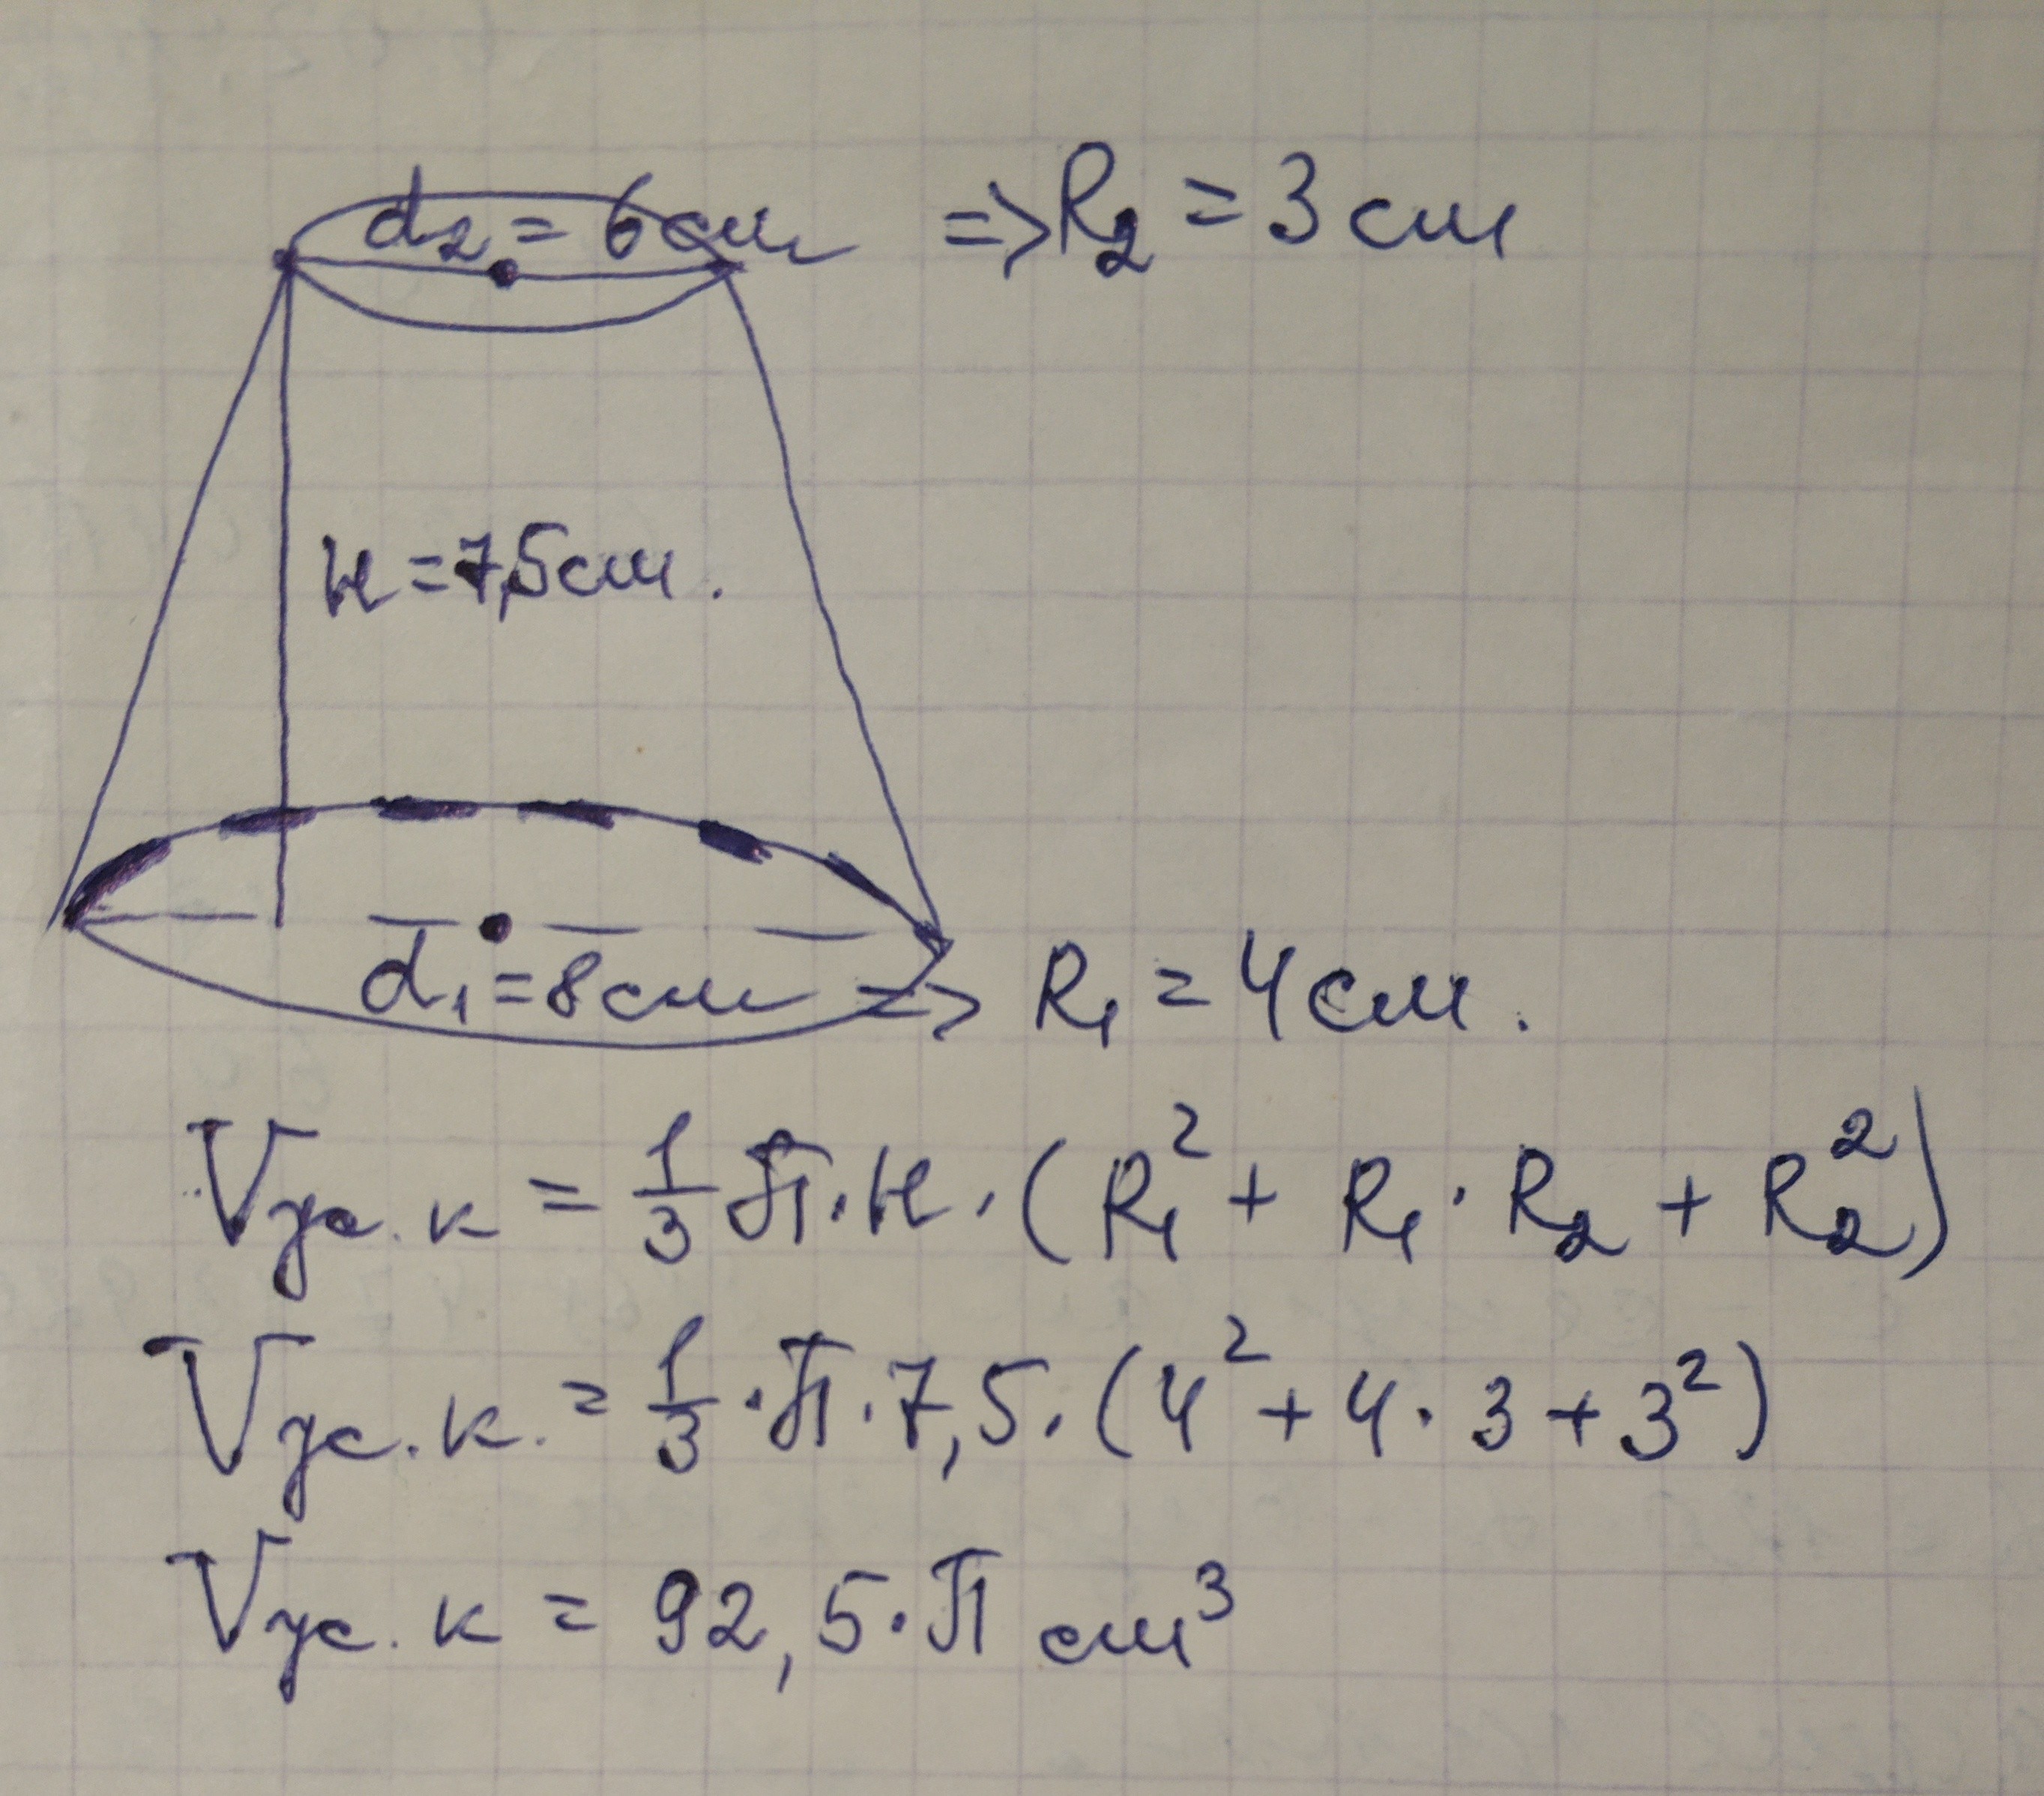 d₂ = 6 см => R₂ = 3 см
H = 7,5 см.
d₁ = 8 см => R₁ = 4 см.
Vус. к = 1/3 π · H · (R₁² + R₁ · R₂ + R₂²)
Vус. к. = 1/3 · π · 7,5 · (4² + 4 · 3 + 3²)
Vус. к = 92,5 · π см³